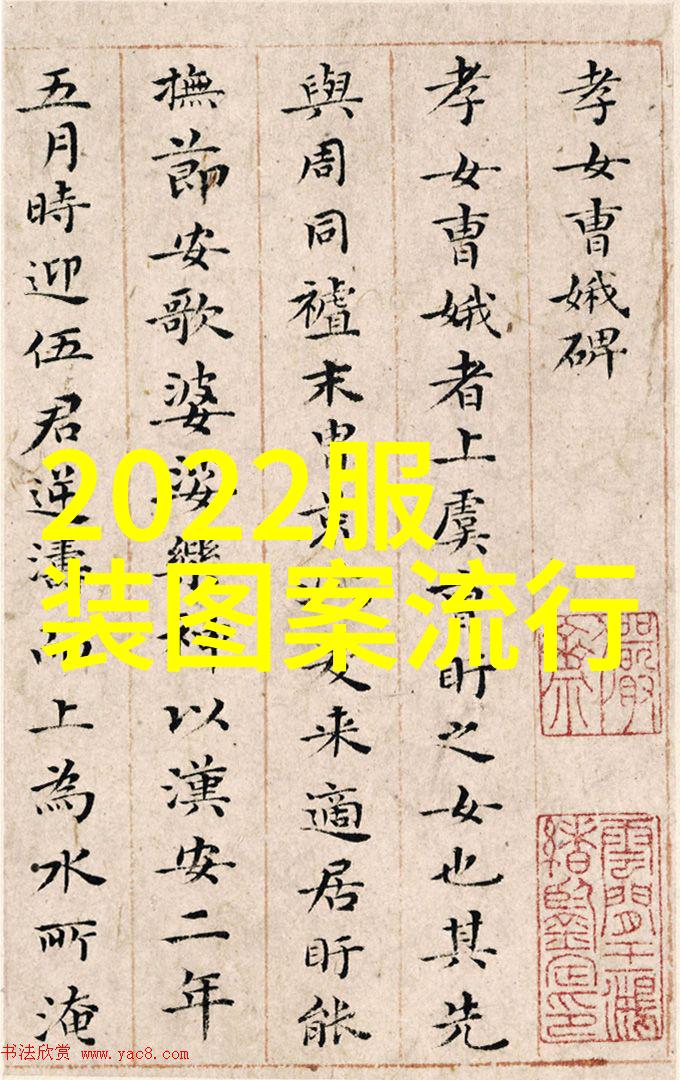 孝女曹娥碑
孝女曹娥者上虞曹盱之女也其先
與周同末胄荒来適居盱能
撫節安歌婆娑樂神以漢安二年
五月時迎伍君逆濤而上為水所淹
2022服
装图案流行
书法欣赏 www.yac8.com